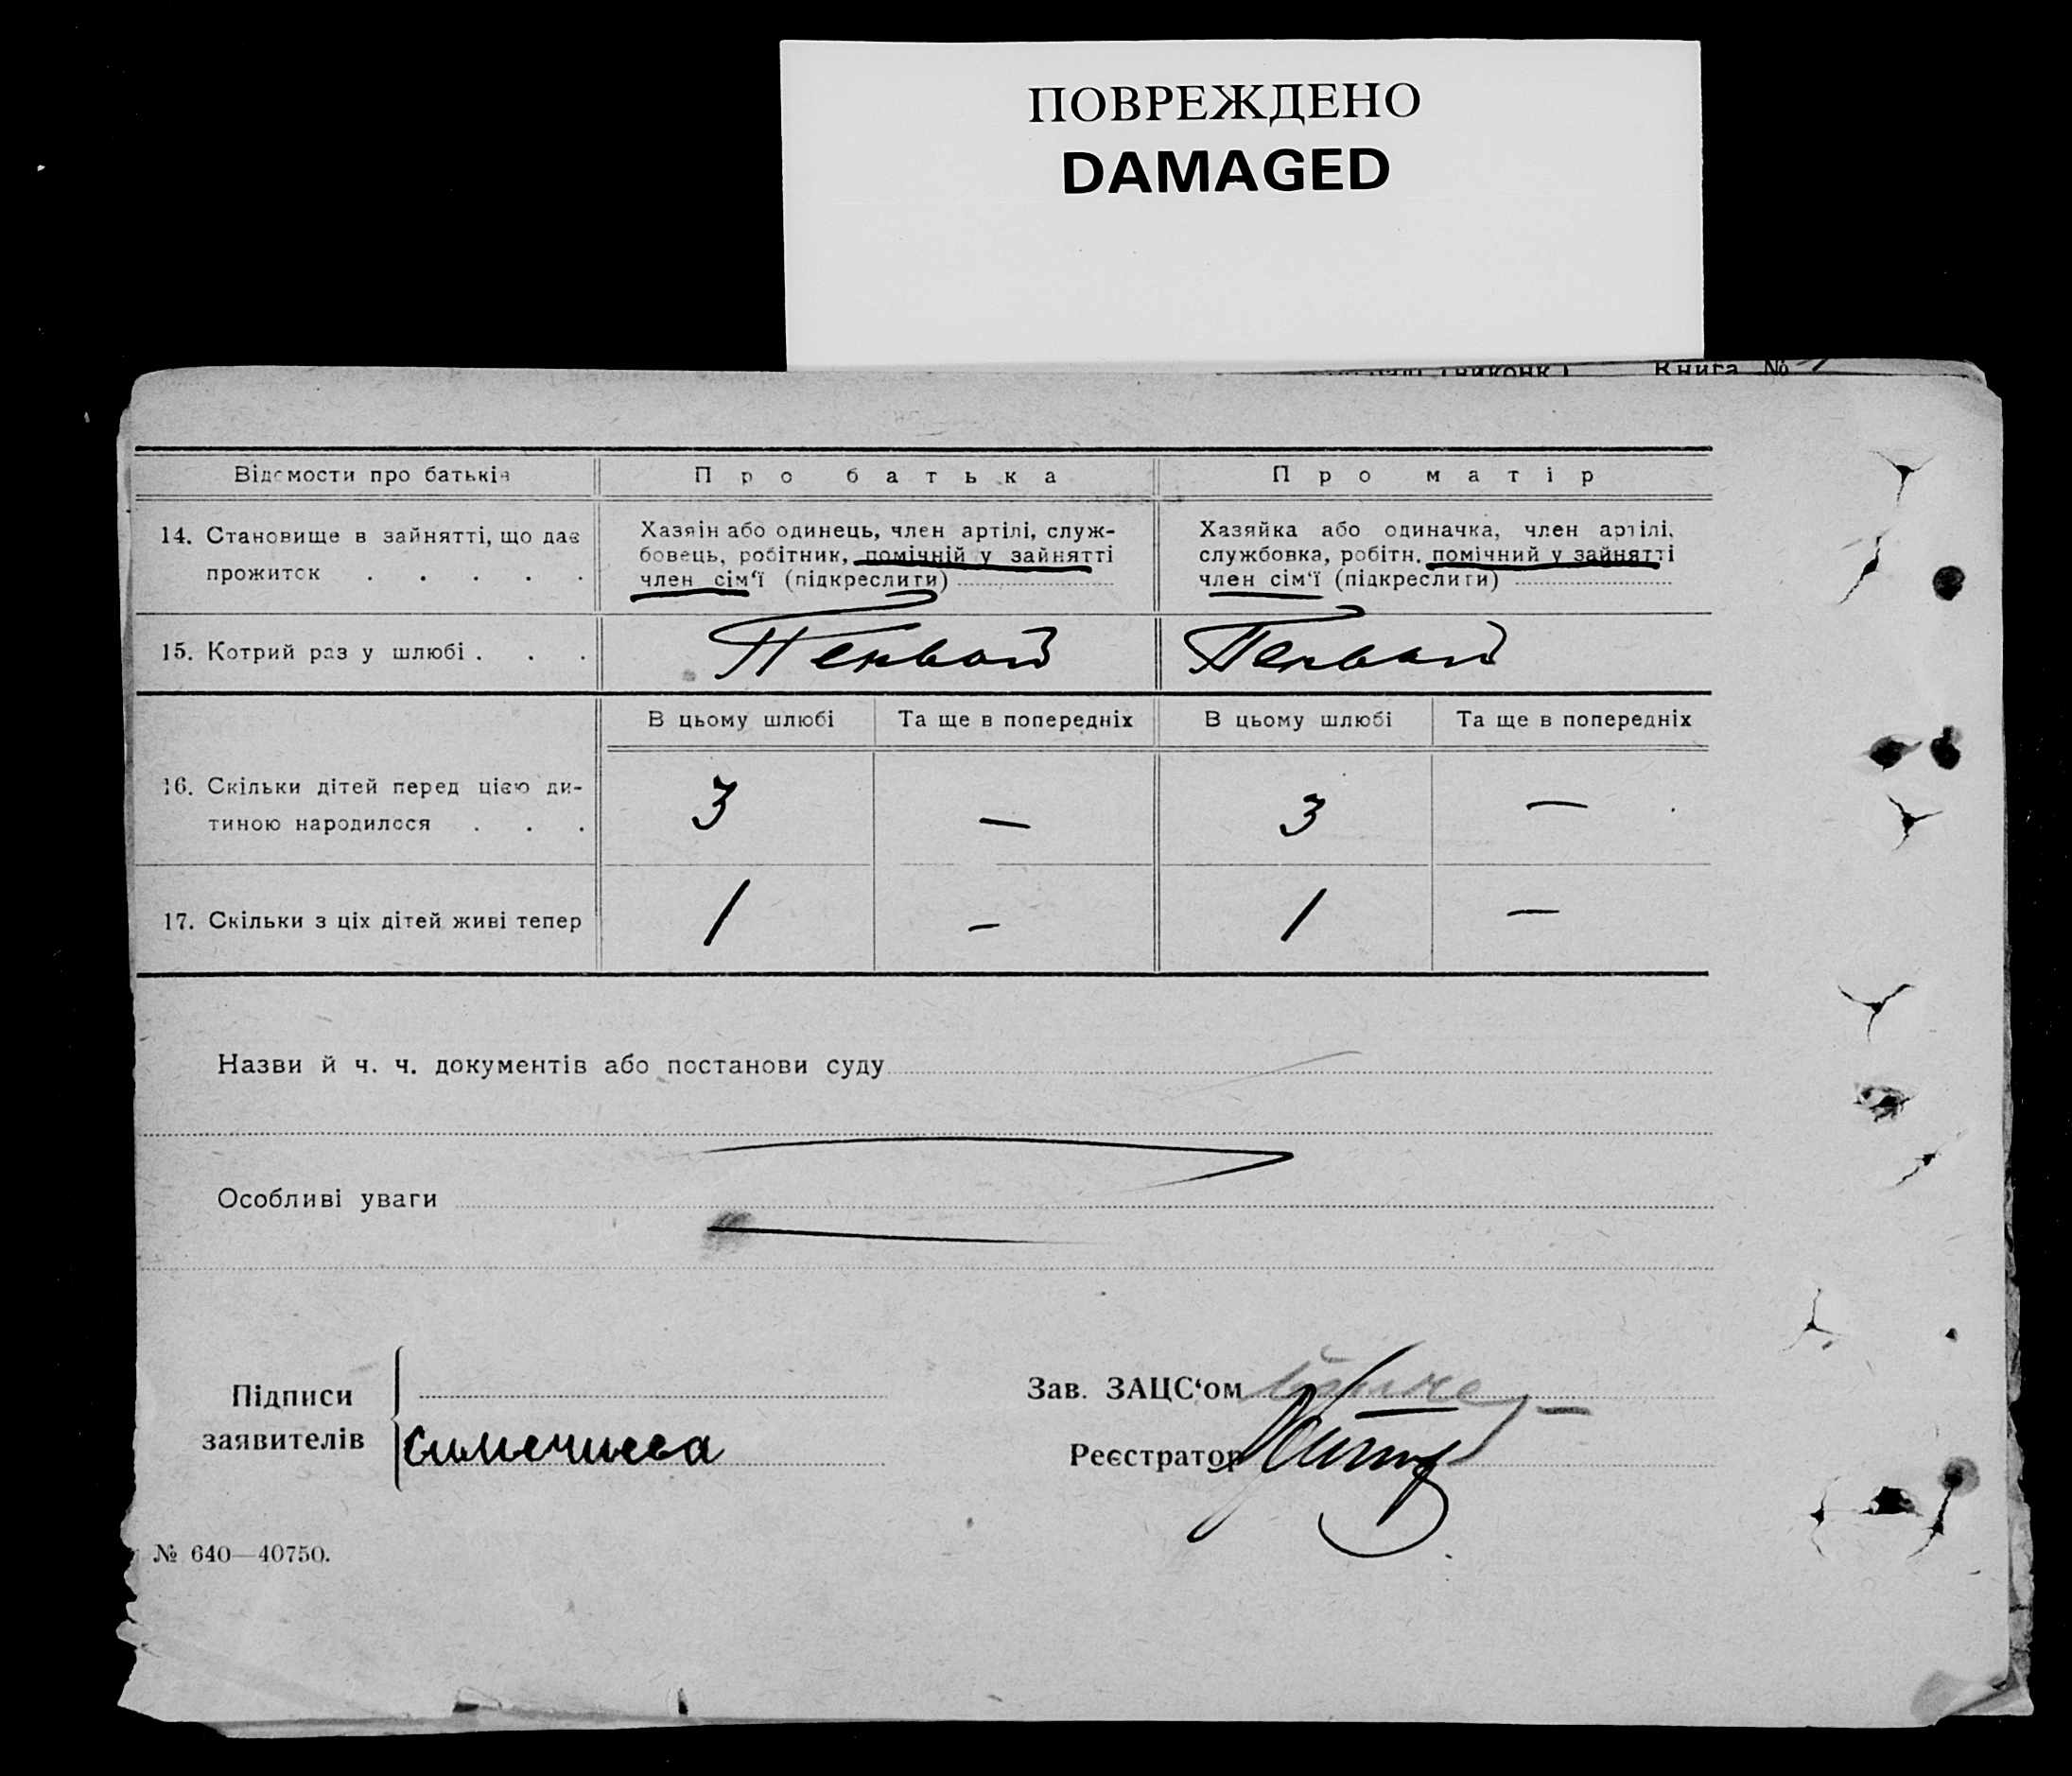 ПОВРЕЖДЕНО
DAMAGED
(виконк.) Книга №
Відомости про батьків Про батька Про матір
14. Становище в зайнятті, що дає прожиток . . . . .
Хазяїн або одинець, член артілі, служ-
бовець, робітник, помічній у зайнятті
член сім'ї (підкреслити)
Хазяйка або одиначка, член артілі,
службовка, робітн. помічний у зайнятті
член сім'ї (підкреслити)
15. Котрий раз у шлюбі . . . Первой Первой
В цьому шлюбі Та ще в попередніх В цьому шлюбі Та ще в попередніх
16. Скільки дітей перед цією ди-
тиною народилося . . . 3 — 3 —
17. Скільки з ціх дітей живі тепер 1 — 1 —
Назви й ч. ч. документів або постанови суду
Особливі уваги
Підписи
заявителів
Зав. ЗАЦС'ом
Реєстратор
№ 640—40750.